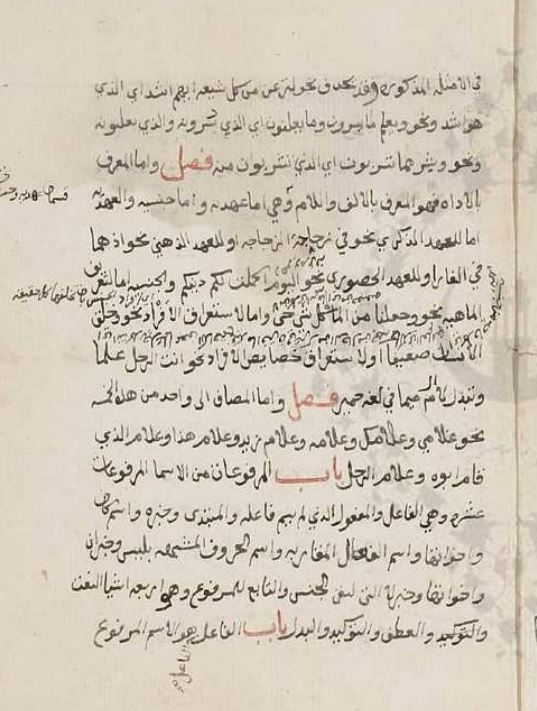 في الامثله المذكوره وقد تحذف نحو لننزعن من كل شيعة ايهم اشد اي الذي
هو اشد ونحو ويعلم ما يسرون وما يعلنون اي الذي يسرونه والذي يعلنونه
ونحو ويشرب مما تشربون اي الذي تشربون منه فصل واما المعرف
بالاداه فهو المعرف بالالف واللام وهي اما عهديه واما جنسيه والعهديه
اما للعهد الذكري نحو في زجاجة الزجاجه او للعهد الذهني نحو اذ هما
في الغار او للعهد الحضوري نحو اليوم اكملت لكم دينكم والجنسيه اما لتعريف
الماهيه نحو وجعلنا من الماء كل شي حي واما لاستغراق الافراد نحو وخلق
الانسان ضعيفا او لاستغراق خصايص الافراد نحو انت الرجل علما
وتبدل لام ال ميما في لغه حمير فصل واما المضاف الى واحد من هذه الخمسه
نحو غلامي وغلامك وغلامه وغلام زيد وغلام هذا وغلام الذي
قام ابوه وغلام الرجل باب المرفوعات من الاسما المرفوعات
عشره وهي الفاعل والمفعول الذي لم يسم فاعله والمبتدى وخبره واسم كان
واخواتها واسم افعال المقاربه واسم الحروف المشبهه بليس وخبر ان
واخواتها وخبر لا التي لنفي الجنس والتابع للمرفوع وهو اربعه اشيا النعت
والتوكيد والعطف والتوكيد والبدل باب الفاعل هو الاسم المرفوع
الفاعل